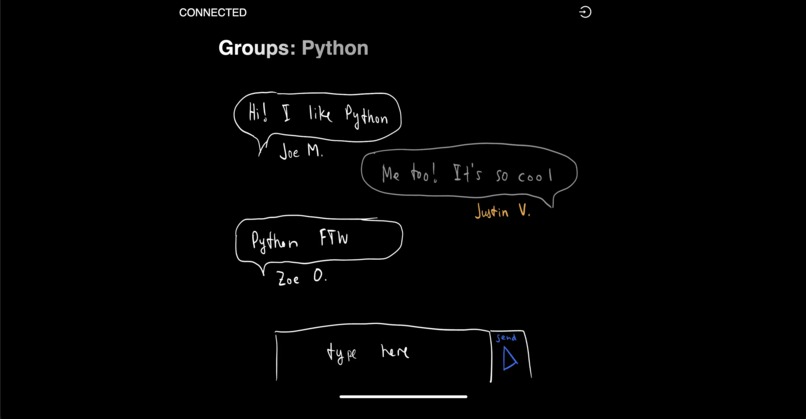 CONNECTED
Groups: Python
Hi! I like Python
Joe M.
Me too! It's so cool
Justin V.
Python FTW
Zoe O.
type here
send